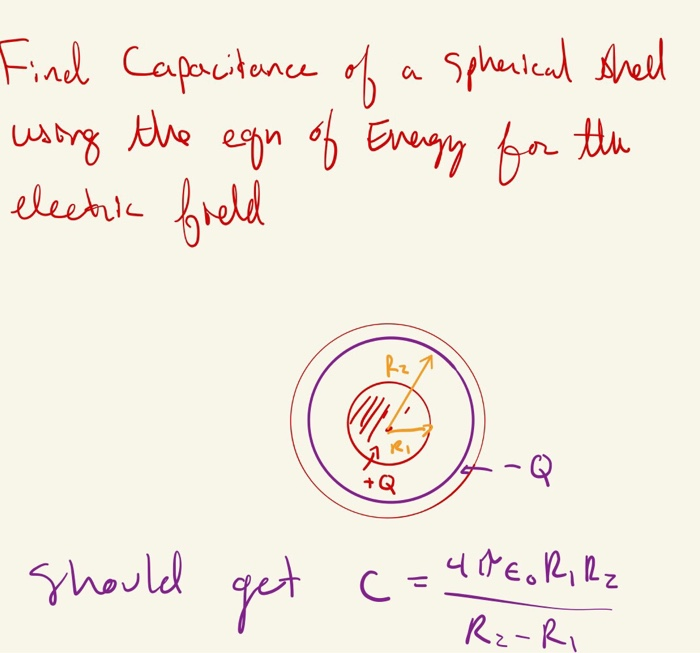 Find Capacitance of a spherical shell
using the eqn of Energy for the
electric field
R₂
R₁
+Q
- Q
Should get C = 4πϵ₀R₁R₂ / R₂ - R₁